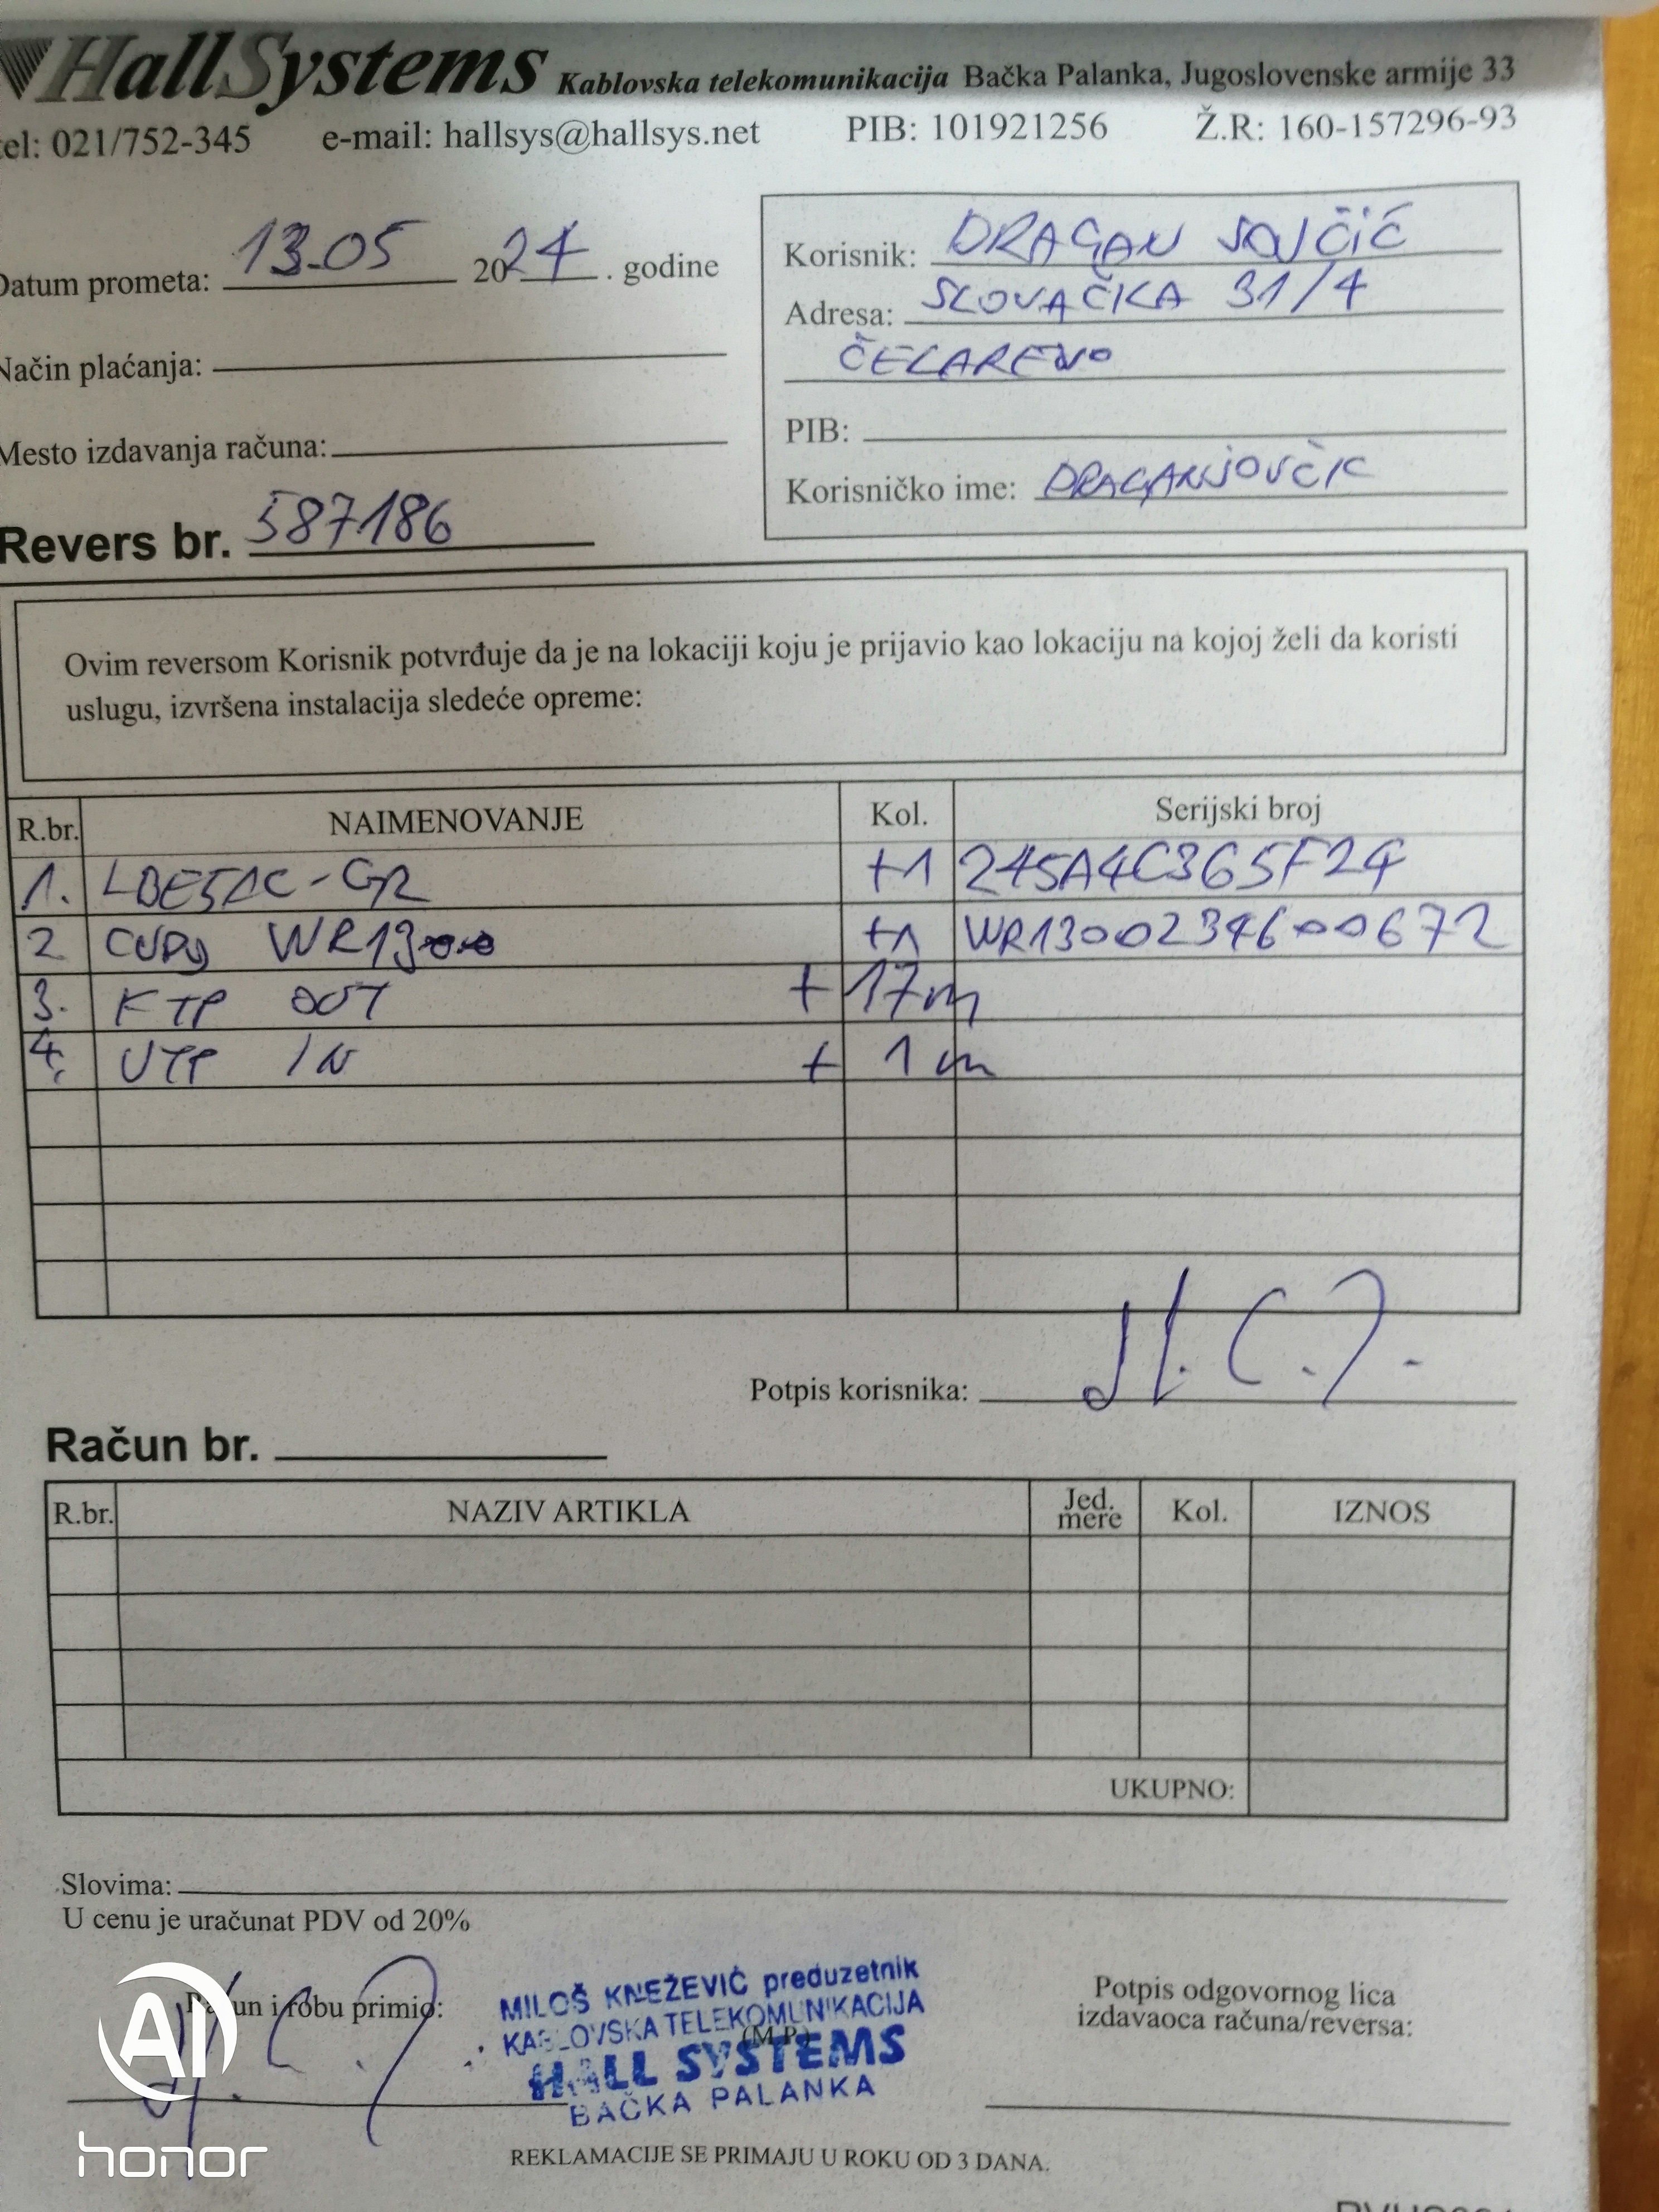 HallSystems Kablovska telekomunikacija Bačka Palanka, Jugoslovenske armije 33
tel: 021/752-345 e-mail: hallsys@hallsys.net PIB: 101921256 Ž.R: 160-157296-93
Datum prometa: 13.05 2024. godine
Korisnik: DRAGAN JOVČIĆ
Adresa: SLOVAČKA 31/4
ČELAREVO
Način plaćanja:
PIB:
Mesto izdavanja računa:
Korisničko ime: DRAGANJOVČIC
Revers br. 587186
Ovim reversom Korisnik potvrđuje da je na lokaciji koju je prijavio kao lokaciju na kojoj želi da koristi
uslugu, izvršena instalacija sledeće opreme:
R.br. NAIMENOVANJE Kol. Serijski broj
1. LBE5AC-GR +1 245A4C365F24
2 CUDY WR1300 +1 WR1300234600672
3. FTP OUT +17m
4. UTP IN + 1m
Potpis korisnika:
Račun br.
R.br. NAZIV ARTIKLA Jed. mere Kol. IZNOS
UKUPNO:
Slovima:
U cenu je uračunat PDV od 20%
Račun i robu primio:
MILOŠ KNEŽEVIĆ preduzetnik
KABLOVSKA TELEKOMUNIKACIJA
(M.P.)
HALL SYSTEMS
BAČKA PALANKA
Potpis odgovornog lica
izdavaoca računa/reversa:
REKLAMACIJE SE PRIMAJU U ROKU OD 3 DANA.
AI
honor